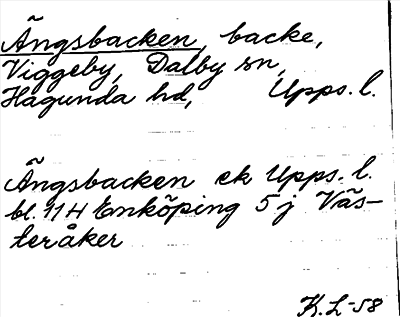 Ängsbacken, backe,
Viggeby, Dalby sn,
Hagunda hd, Upps. l.
Ängsbacken ek Upps. l.
bl. 11H Enköping 5 j Väs-
teråker
K.L-58